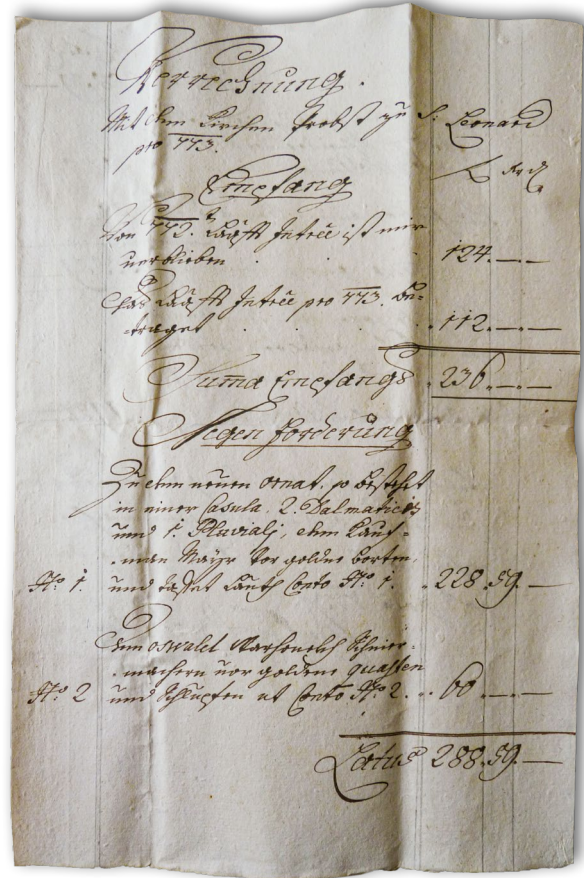 Verrechnung.
Mit dem Kirchen Probst zu S: Leonard
pro 773.
Empfang
Von 772. Läufft Intrêe ist mir
verbliben . . . 124.—.—
Das Läufft Intrêe pro 773. be-
-traget . . . 112.—.—
Suma Empfangs . 236.—.—
Gegen Forderung
Zu dem neuen ornat, so bestehet
in einer Casula, 2. Dalmaticis
und 1. Pluviali, dem Kauf-
-man Mayr vor goldne borten,
No. 1. und Taffet lauth Conto No. 1. . 228.59.—
Dem oswald Schnier-
-machern vor goldene quasten
No. 2 und Schlupfen ut Conto No. 2. . . 60.—.—
Latus 288.59.—